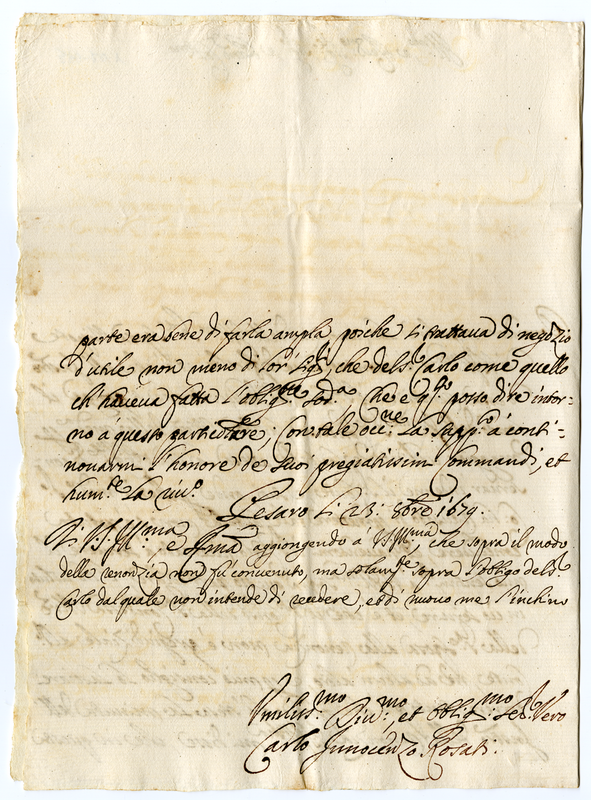 parte era bene di farla ampla poiche si trattaua di negozio
d'utile non meno di lor Sig.ri, che del S.r Carlo come quello
ch'haueua fatta l'oblig.ne sod.a Che è q.to posso dire intor=
no à questo particolare; Con tale occ.ne La supp.co à conti=
nouarmi l'honore de suoi pregiatissimi Commandi, et
hum.te La riu.o
Pesaro Li 23: 9bre 1679.
Di V.S. Ill.ma, e aggiongendo à V.S. Ill.ma, che sopra il modo
della renonzia non fù conuenuto, ma sopra l'obligo del S.r
Carlo dal quale non intende di recedere, et di nuouo me l'inchino
Diu.mo et Oblig.mo Ser.r Vero
Carlo Innocenzo Rosati